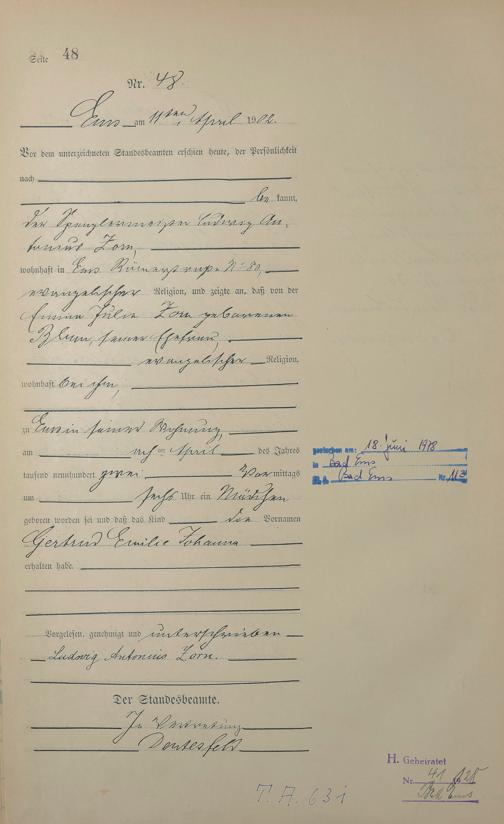 Seite 48
Nr. 48.
Ems am 11ten April 1902.
Vor dem unterzeichneten Standesbeamten erschien heute, der Persönlichkeit
nach
be kannt,
der Spenglermeister Ludwig An-
tonius Zorn,
wohnhaft in Ems Römerstraße No 80,
evangelischer Religion, und zeigte an, daß von der
Emma Julie Zorn geborenen
Blum, seiner Ehefrau,
evangelischer Religion,
wohnhaft bei ihm,
zu Ems in seiner Wohnung,
am ten April des Jahres
tausend neunhundert zwei Vor mittags
um sechs Uhr ein Mädchen
geboren worden sei und daß das Kind die Vornamen
Gertrud Emilie Johanna
erhalten habe.
Vorgelesen, genehmigt und unterschrieben
Ludwig Antonius Zorn.
Der Standesbeamte.
In Vertretung
gestorben am: 18. Juni 1978
in Bad Ems
Bad Ems Nr.
H. Geheiratet
Nr. 41
Bad Ems
T. A. 631